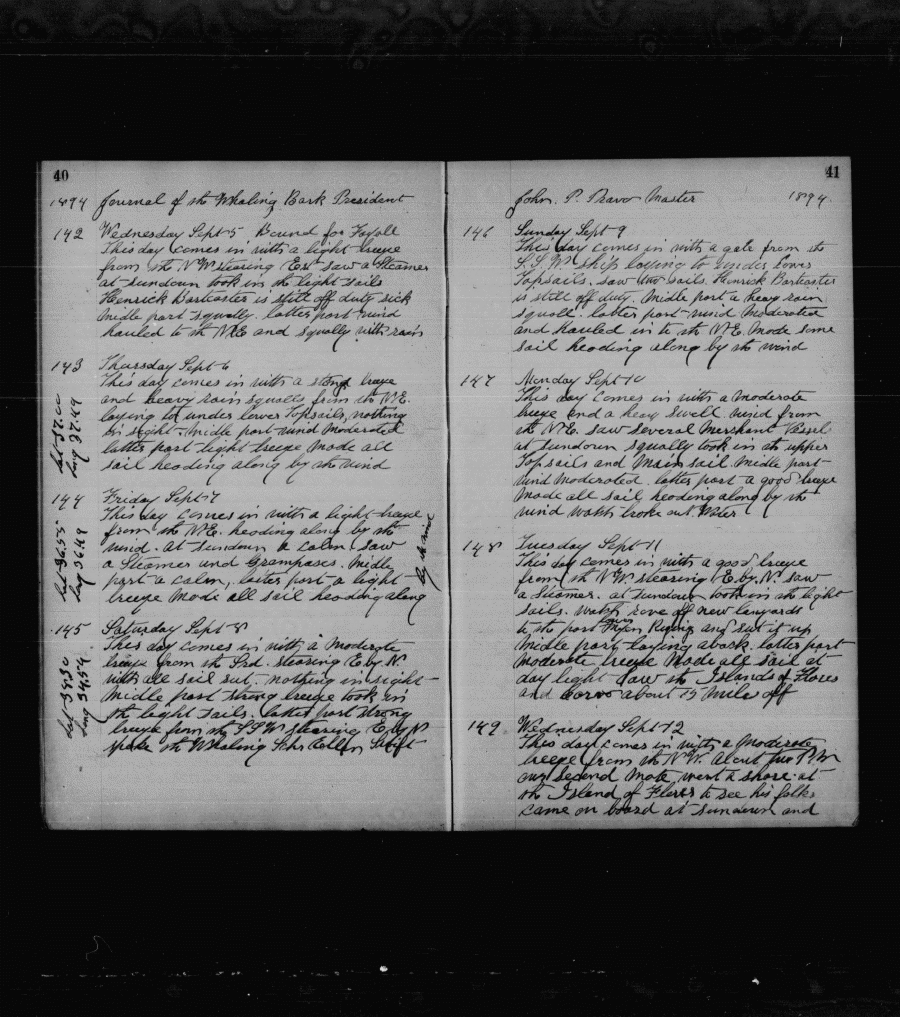 40
1894 Journal of the Whaling Bark President
142 Wednesday Sept 5 Bound for Fayall
This day comes in with a light breeze
from the NW stearing Est saw a Steamer
at sundown took in the light sails
Henrick Bortcaster is still off duty sick
midle part squally. latter part wind
hauled to the NE and squally with rain
143 Thursday Sept 6
This day comes in with a strong breeze
and heavy rain squalls from the NE.
laying to under lower Topsails, nothing
in sight. Midle part wind Moderated
latter part light breeze Made all
sail heading along by the wind
Lat 37.00
Long 37.49
144 Friday Sept 7
This day comes in with a light breeze
from the NE. heading along by the
wind. at sundown a calm saw
a Steamer and Grampases. Midle
part a calm, latter part a light
breeze Made all sail heading along
by the wind
Lat 36.55
Long 36.48
145 Saturday Sept 8
This day comes in with a Moderate
breeze from the Srd. stearing E by N
with all sail set. nothing in sight
Middle part strong breeze took in
the light sails. latter part strong
breeze from the SSW stearing E by N
spoke the Whaling Schr Swift
Lat 38.30
Long 34.54
41
John. P. Pravo Master 1894
146 Sunday Sept 9
This day comes in with a gale from the
S.S.W. ship laying to under lower
Topsails. saw two sails. Henrick Bortcaster
is still off duty. Midle part a heavy rain
squall. latter part wind Moderated
and hauled in to the NE. Made some
sail heading along by the wind
147 Monday Sept 10
This day comes in with a Moderate
breeze and a heavy swell. wind from
the N.E. saw several Merchant Vessels
at sundown squally took in the upper
Topsails and Main sail. Midle part
wind moderated. latter part a good breeze
Made all sail heading along by the
wind watch broke out Water
148 Tuesday Sept 11
This day comes in with a good breeze
from the NW stearing E. by. N. saw
a Steamer. at sundown took in the light
sails. watch rove off new lanyards
to the port Rigging and set it up
Midle part laying aback. latter part
Moderate breeze Made all sail at
day light saw the Islands of Flores
and Corvo about 15 Miles off
149 Wednesday Sept 12
This day comes in with a Moderate
breeze from the NW. About P.M
our second Mate went a shore at
the Island of Flores to see his folks
came on board at sundown and